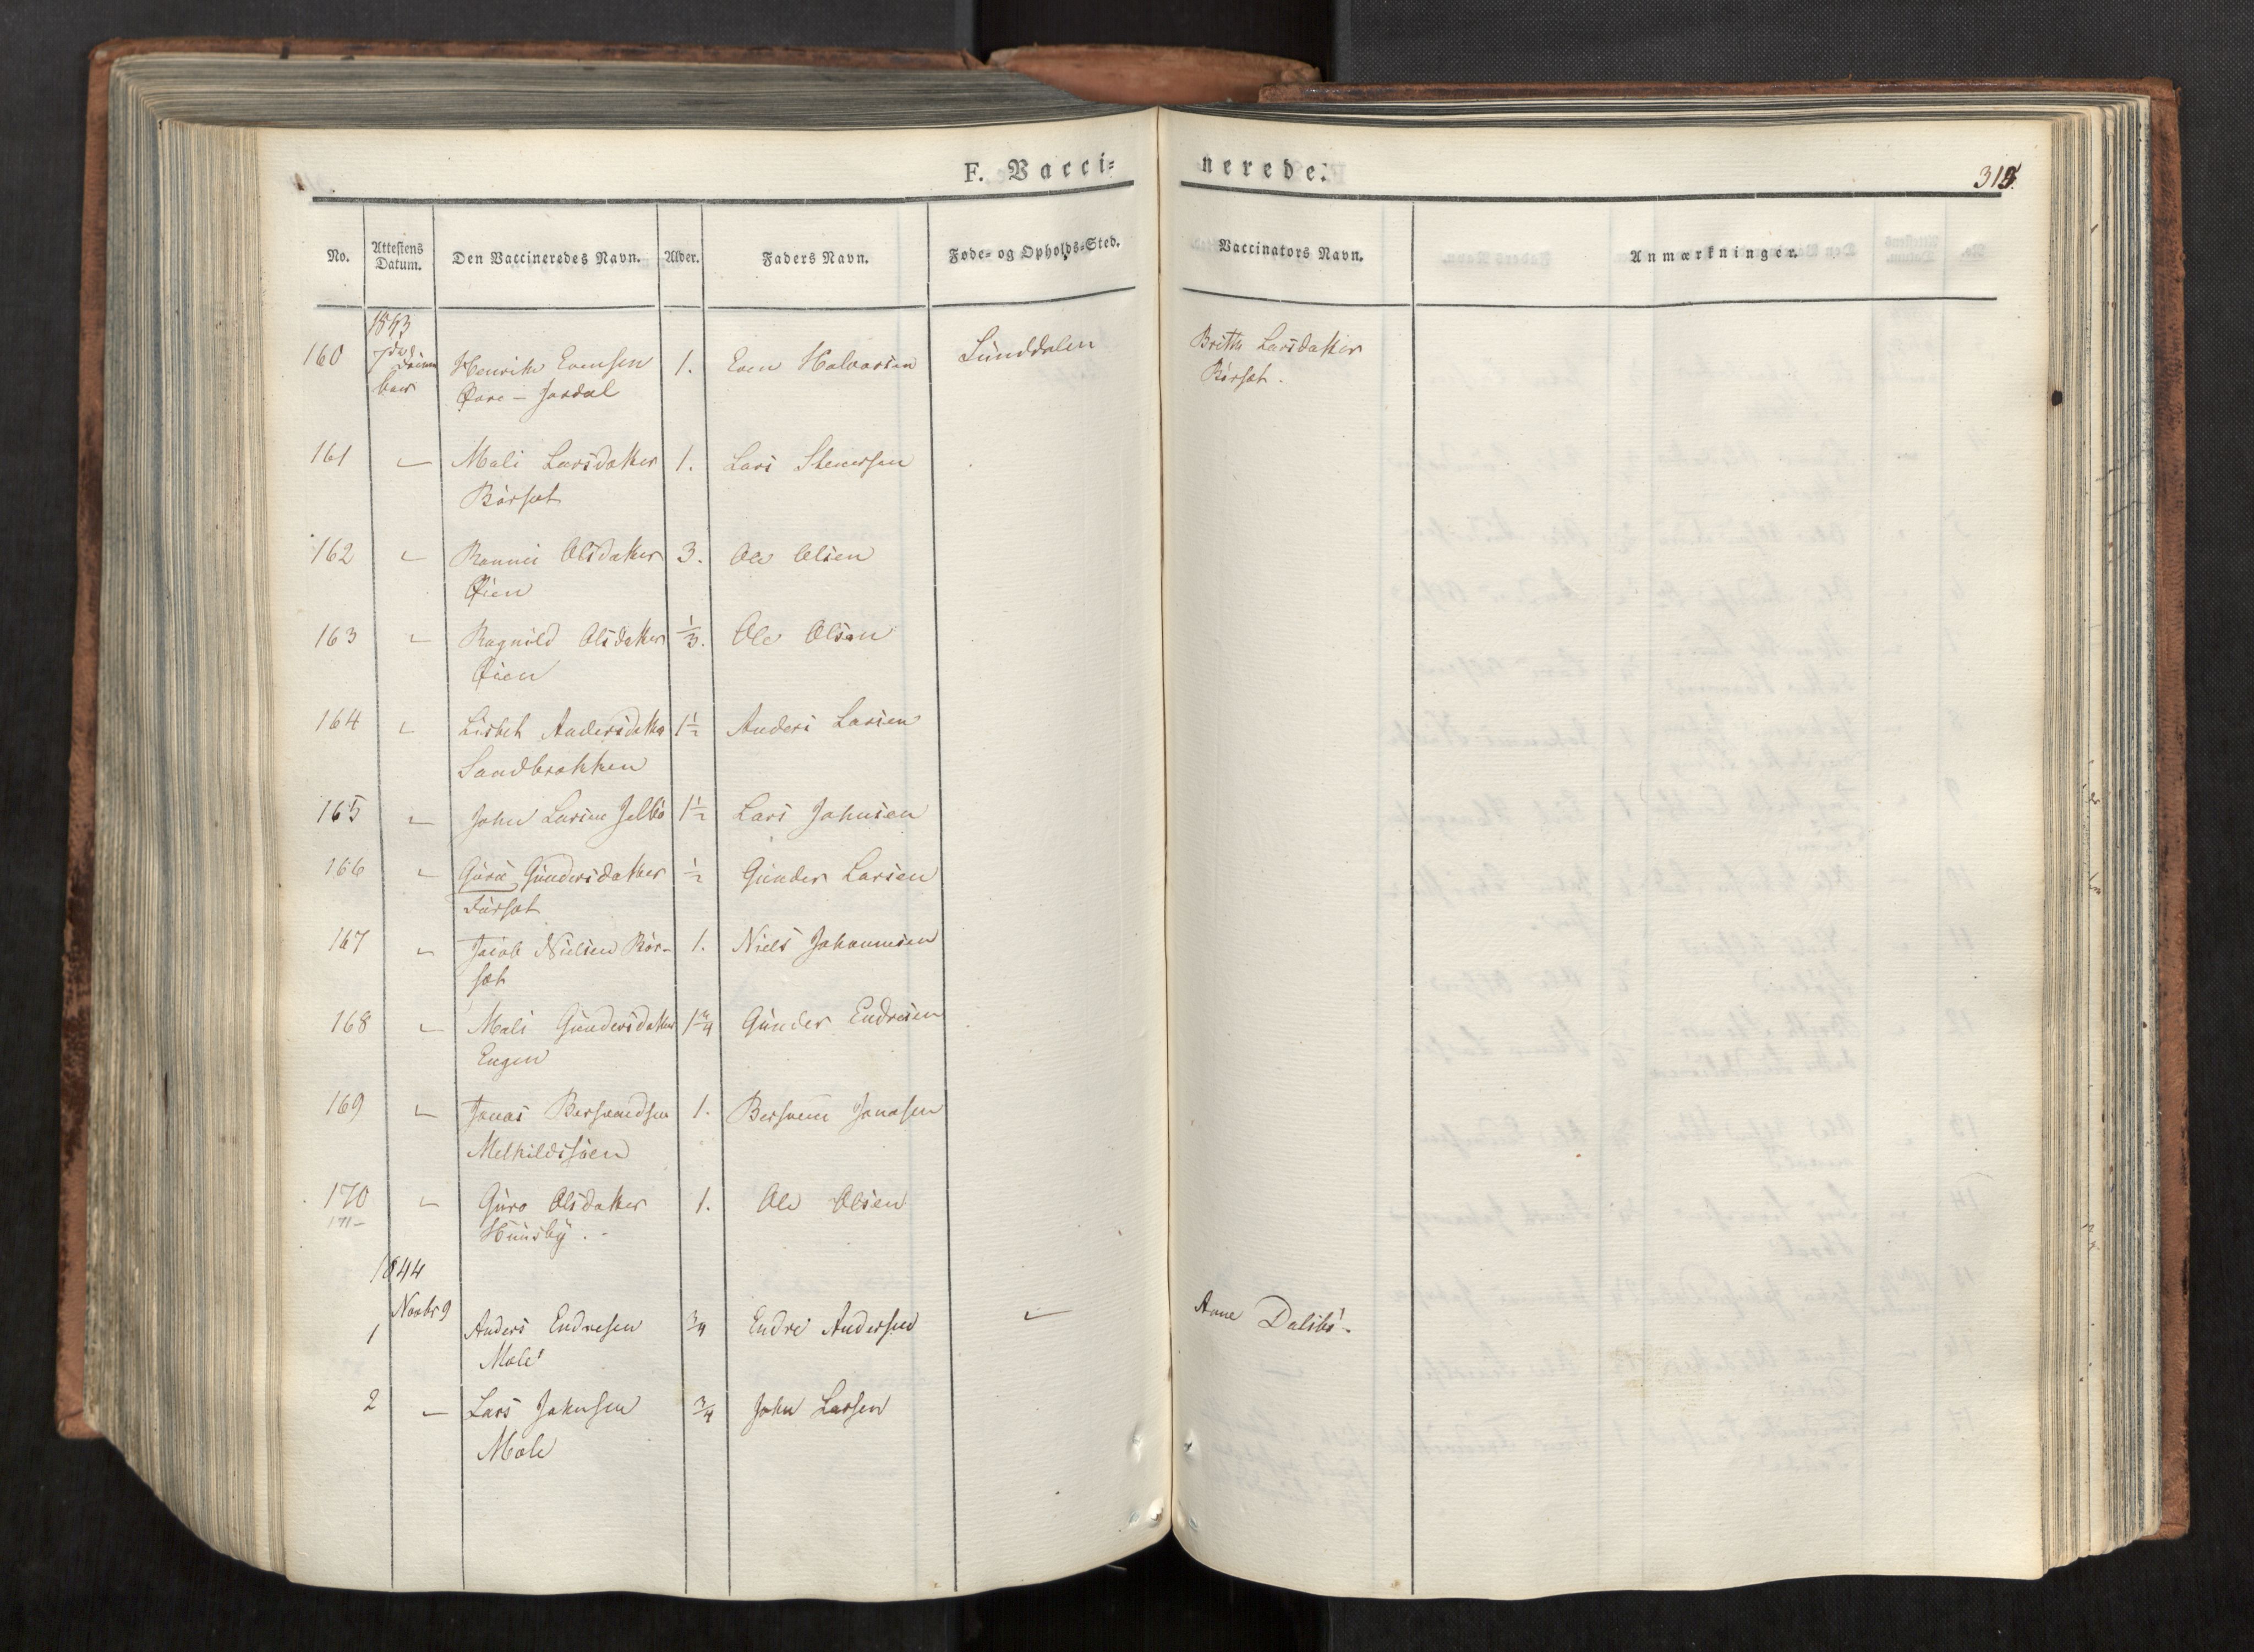 F. Vacci=
nerede.
315.
No. Attestens Datum. Den Vaccineredes Navn. Alder. Faders Navn. Føde= og Opholds=Sted. Vaccinators Navn. Anmærkninger.
1843
160 7de Decem Henrik Evensen 1. Even Halvorsen Sunddalen Britth Larsdatter
ber Øvre - Jordal Børset.
161 " Mali Larsdatter 1. Lars Stenersen
Børset
162 " Rannei Olsdatter 3. Ole Olsen
Øien
163 " Ragnild Olsdatter 1/3. Ole Olsen
Øien
164 " Lisbet Andersdatter 1 1/2 Anders Larsen
Sandbrækken
165 " John Larsen Jelbø 1 1/2 Lars Johnsen
166 " Guru Gundersdatter 1/2 Gunder Larsen
Furset
167 " Jacob Nielsen Bør- 1. Niels Johannesen
set
168 " Mali Gundersdatter 1 3/4 Gunder Endresen
Engen
169 " Jonas Bersvendsen 1. Bersven Jonasen
Melkildsøen
170 " Guro Olsdatter 1. Ole Olsen
171- Huusby.
1844
Novbr 9
1 Anders Endresen 3/4 Endre Andersen " Anne Dalsbø.
Mæle
2 " Lars Johnsen 3/4 John Larsen
Mæle